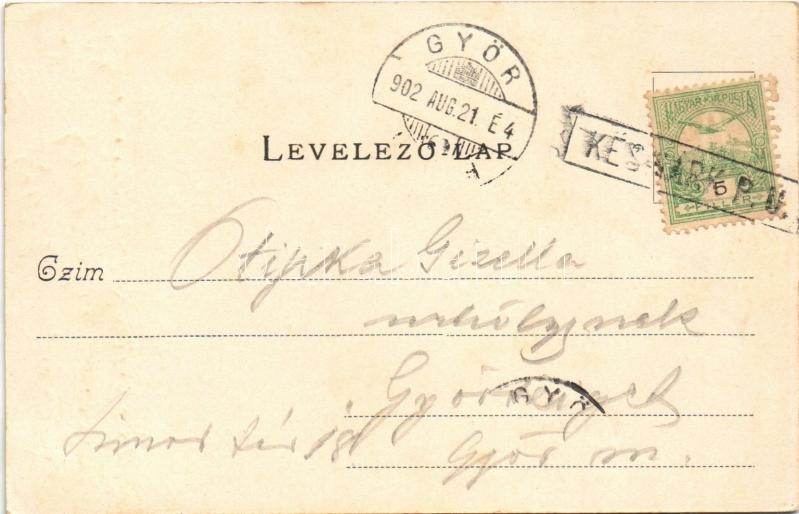 GYÖR
902 AUG.21. É4
LEVELEZŐ-LAP.
KÉSMÁRK P. U.
MAGYAR KIR. POSTA
5
FILLÉR
Czim Otipka Gizella
urhölgynek
Győrsziget
GYÖ
Simor tér 18.
Győr m.